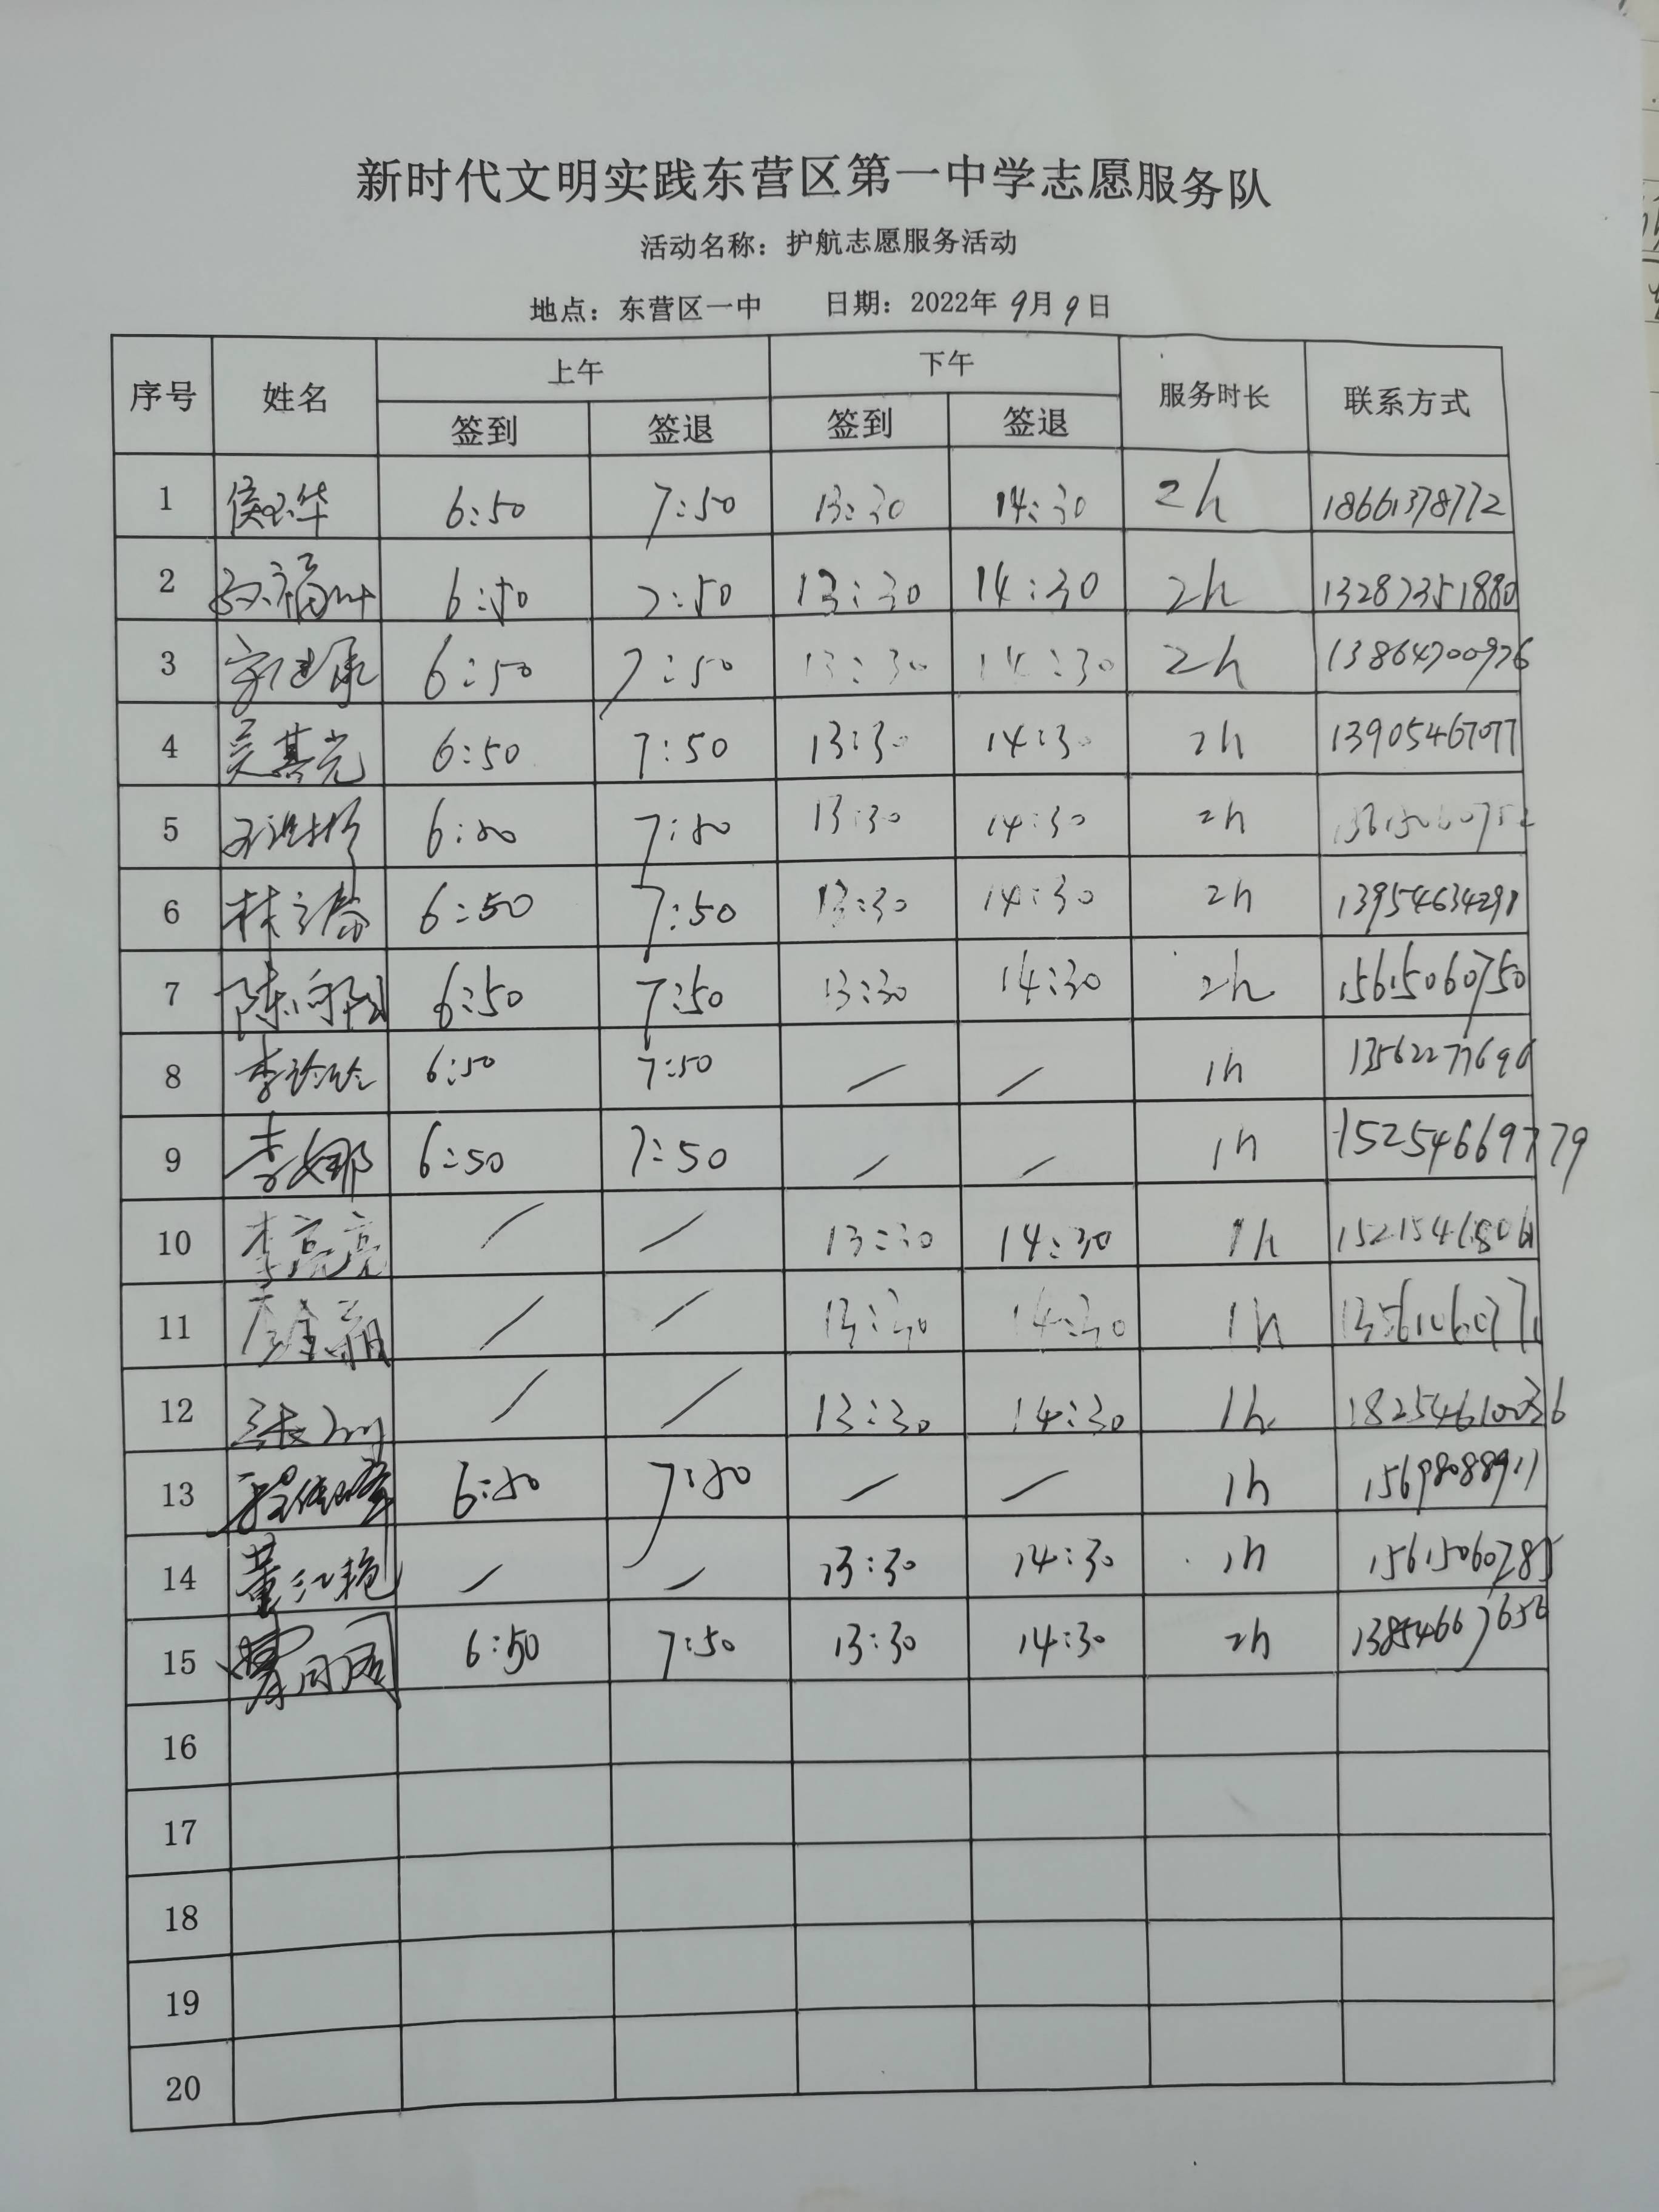 新时代文明实践东营区第一中学志愿服务队
活动名称：护航志愿服务活动
地点：东营区一中 日期：2022年 9月 9日
序号 姓名 上午 下午 服务时长 联系方式
签到 签退 签到 签退
1 6:50 7:50 13:30 14:30 2h 18661378772
2 6:50 7:50 13:30 14:30 2h 13287351880
3 6:50 7:50 13:30 14:30 2h 13864700976
4 吴其光 6:50 7:50 13:30 14:30 2h 13905467077
5 6:50 7:50 13:30 14:30 2h
6 6:50 7:50 13:30 14:30 2h 13954634291
7 陈向阳 6:50 7:50 13:30 14:30 2h 15615060750
8 李玲玲 6:50 7:50 / / 1h 13562277696
9 李娜 6:50 7:50 / / 1h 15254669779
10 李亮亮 / / 13:30 14:30 1h
11 / / 13:30 14:30 1h
12 / / 13:30 14:30 1h 18254610036
13 6:50 7:50 / / 1h 15698088911
14 董江艳 / / 13:30 14:30 1h 15615060785
15 6:50 7:50 13:30 14:30 2h 13854667656
16
17
18
19
20